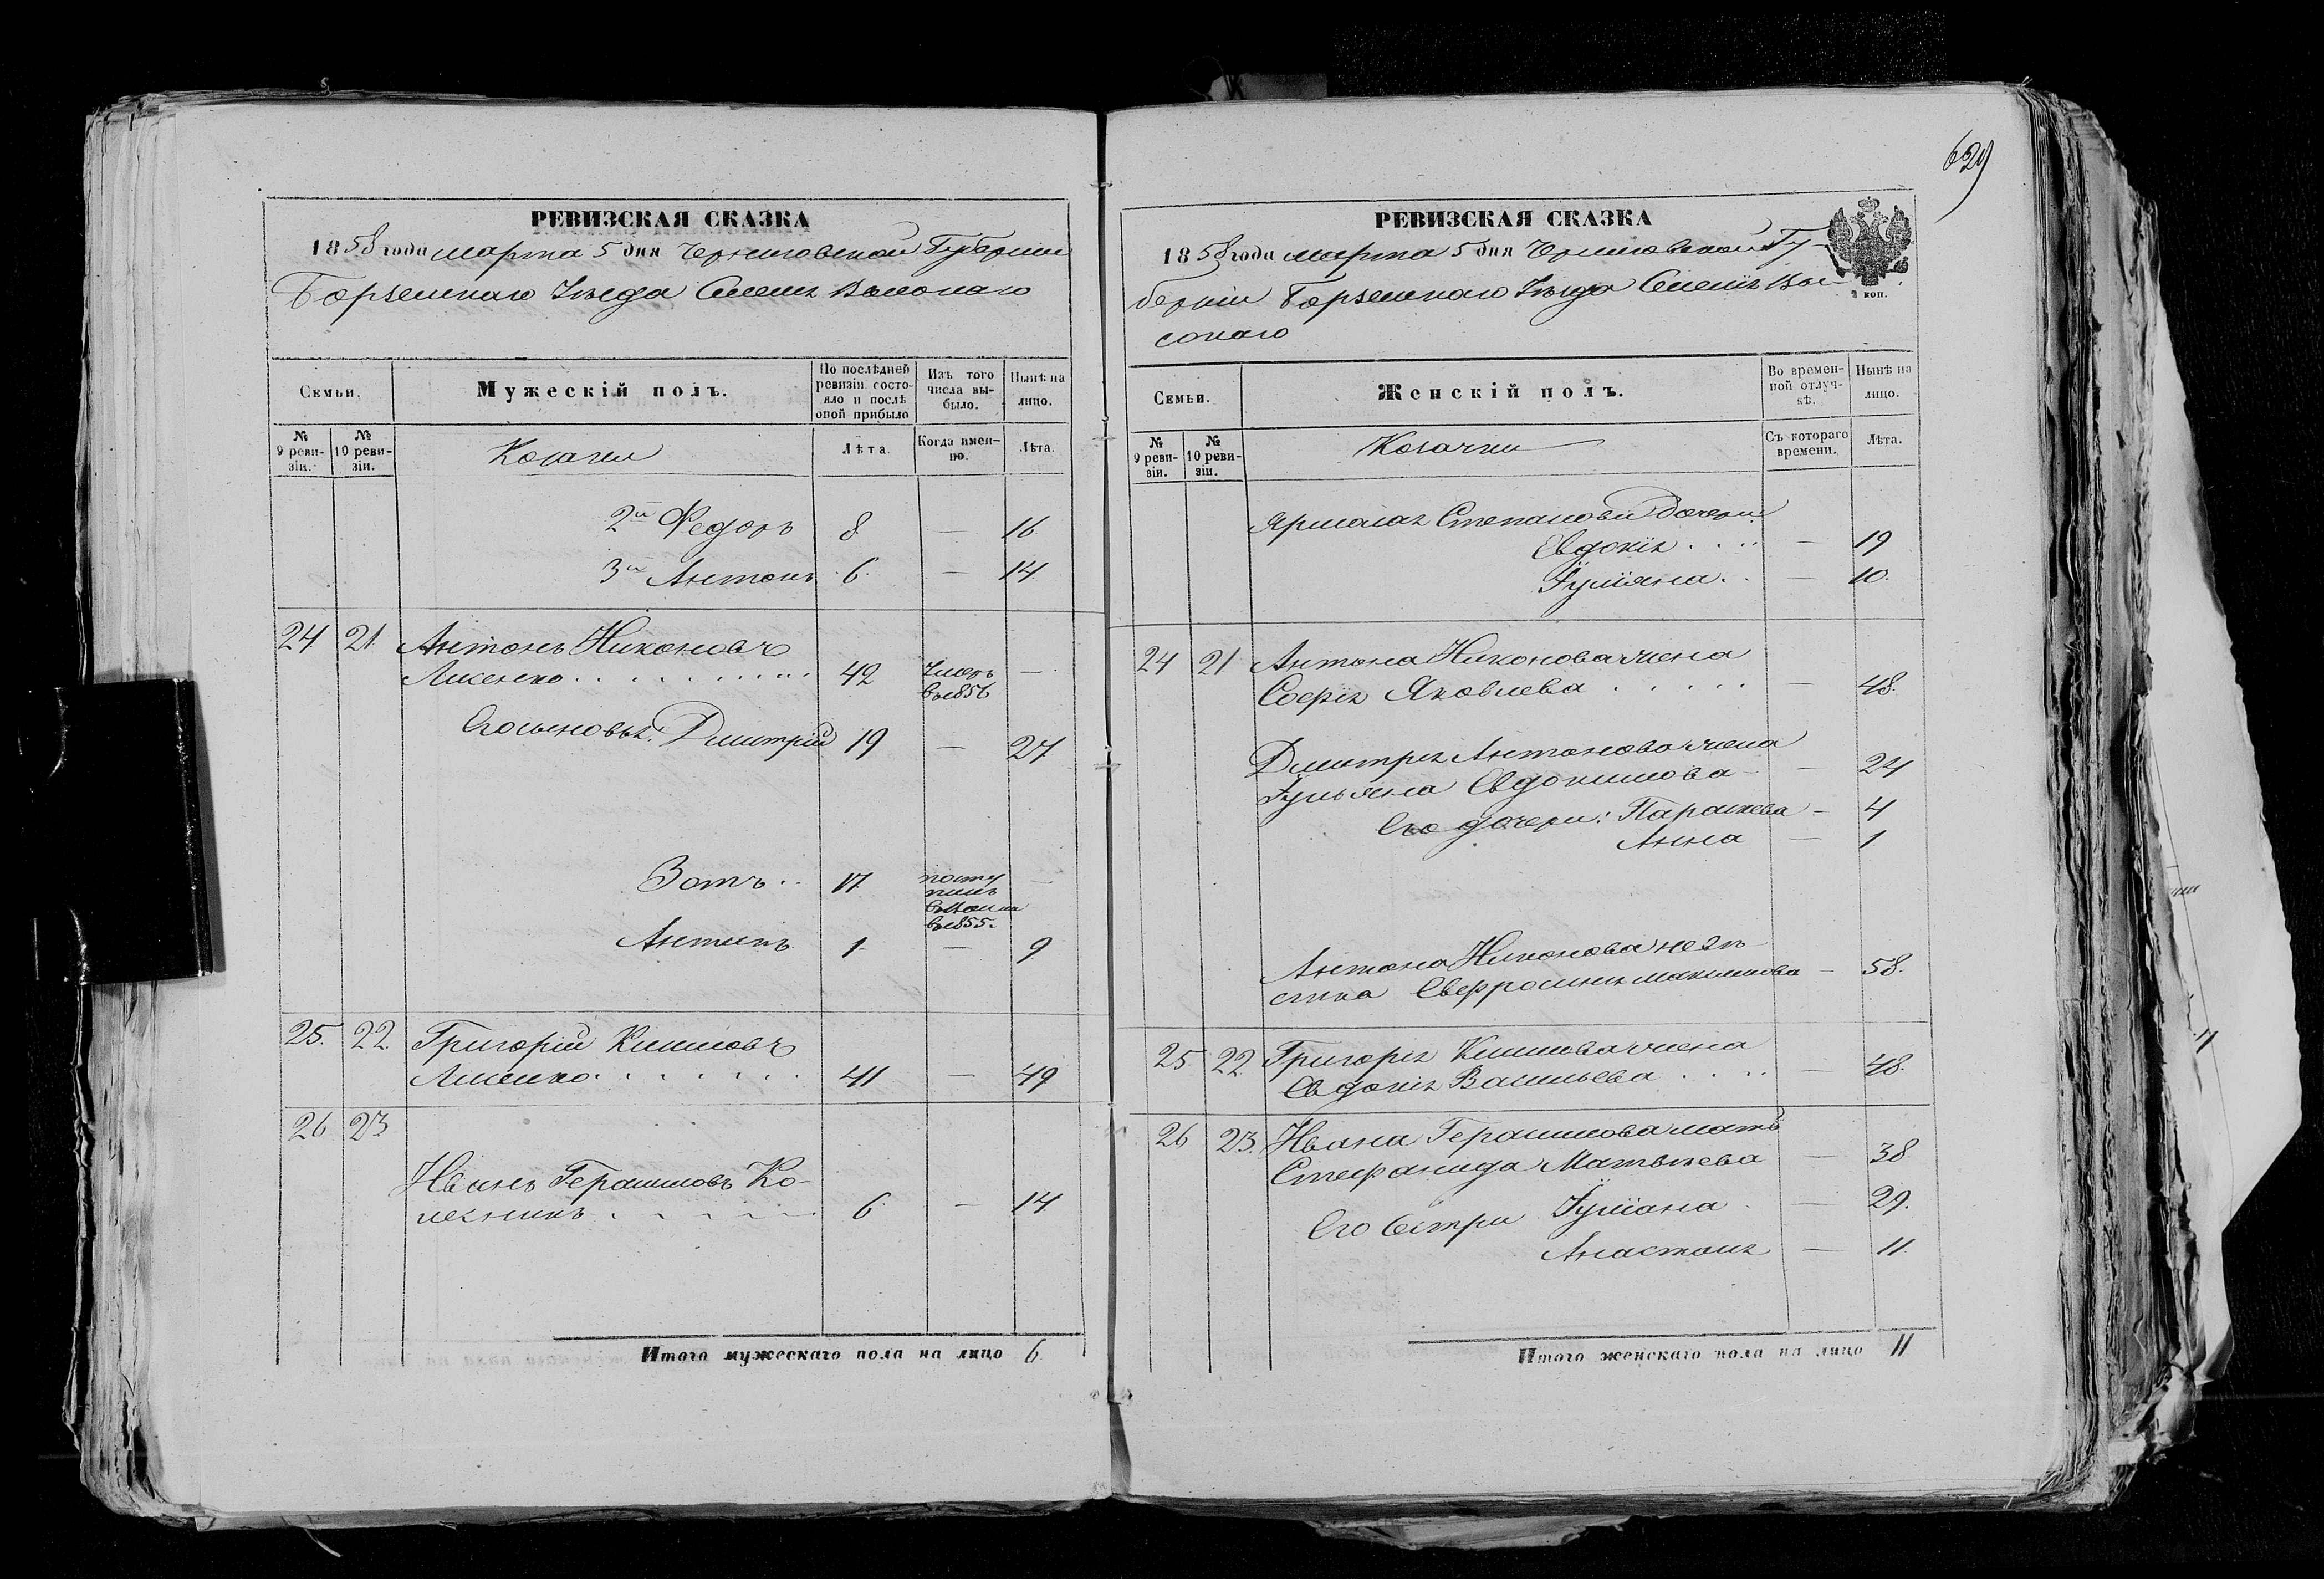 629
РЕВИЗСКАЯ СКАЗКА
1858 года марта 5 дня Черниговской Губернии
Борзенскаго Уѣзда Селенія Высокаго
Семьи.
Мужескій полъ.
По послѣдней ревизіи состояло и послѣ оной прибыло
Изъ того числа выбыло.
Нынѣ на лицо.
№ 9 ревизіи.
№ 10 ревизіи.
Козаки
Лѣта
Когда именно.
Лѣта.
2й Федоръ 8 — 16
3й Антонъ 6 — 14
24 21 Антонъ Никоновъ
Лисенко 42 Умеръ —
в 1856
Его сыновья: Дмитрій 19 — 27
Зотъ 17 посту —
пилъ
в 1855.
Антипъ 1 — 9
25. 22. Григорій Климовъ
Лисенко 41 — 49
26 23
Иванъ Герасимовъ Ко-
лесникъ 6 — 14
Итого мужескаго пола на лицо 6
РЕВИЗСКАЯ СКАЗКА
1858 года марта 5 дня Черниговской Гу-
берніи Борзенскаго Уѣзда Селенія Вы-
сокаго
2 коп.
Семьи.
Женскій полъ.
Во временной отлучкѣ.
Нынѣ на лицо.
№ 9 ревизіи.
№ 10 ревизіи.
Козачки
Съ котораго времени.
Лѣта.
Степанова дочери
Евдокія — 19
Іуліяна — 10.
24 21 Антона Никонова жена
Софія Яковлева — 48.
Дмитрія Антонова жена
Іульяна Евдокимова — 24
Его дочери: Параскева — 4
Анна — 1
Антона Никонова невѣ-
стка Евфросинія Максимова — 58.
25 22 Григорія Климова жена
Евдокія Васильева — 48.
26 23. Ивана Герасимова мать
Стефанида Матвѣева — 38
Его сестри Іуліана — 29.
Анастасія — 11.
Итого женскаго пола на лицо 11